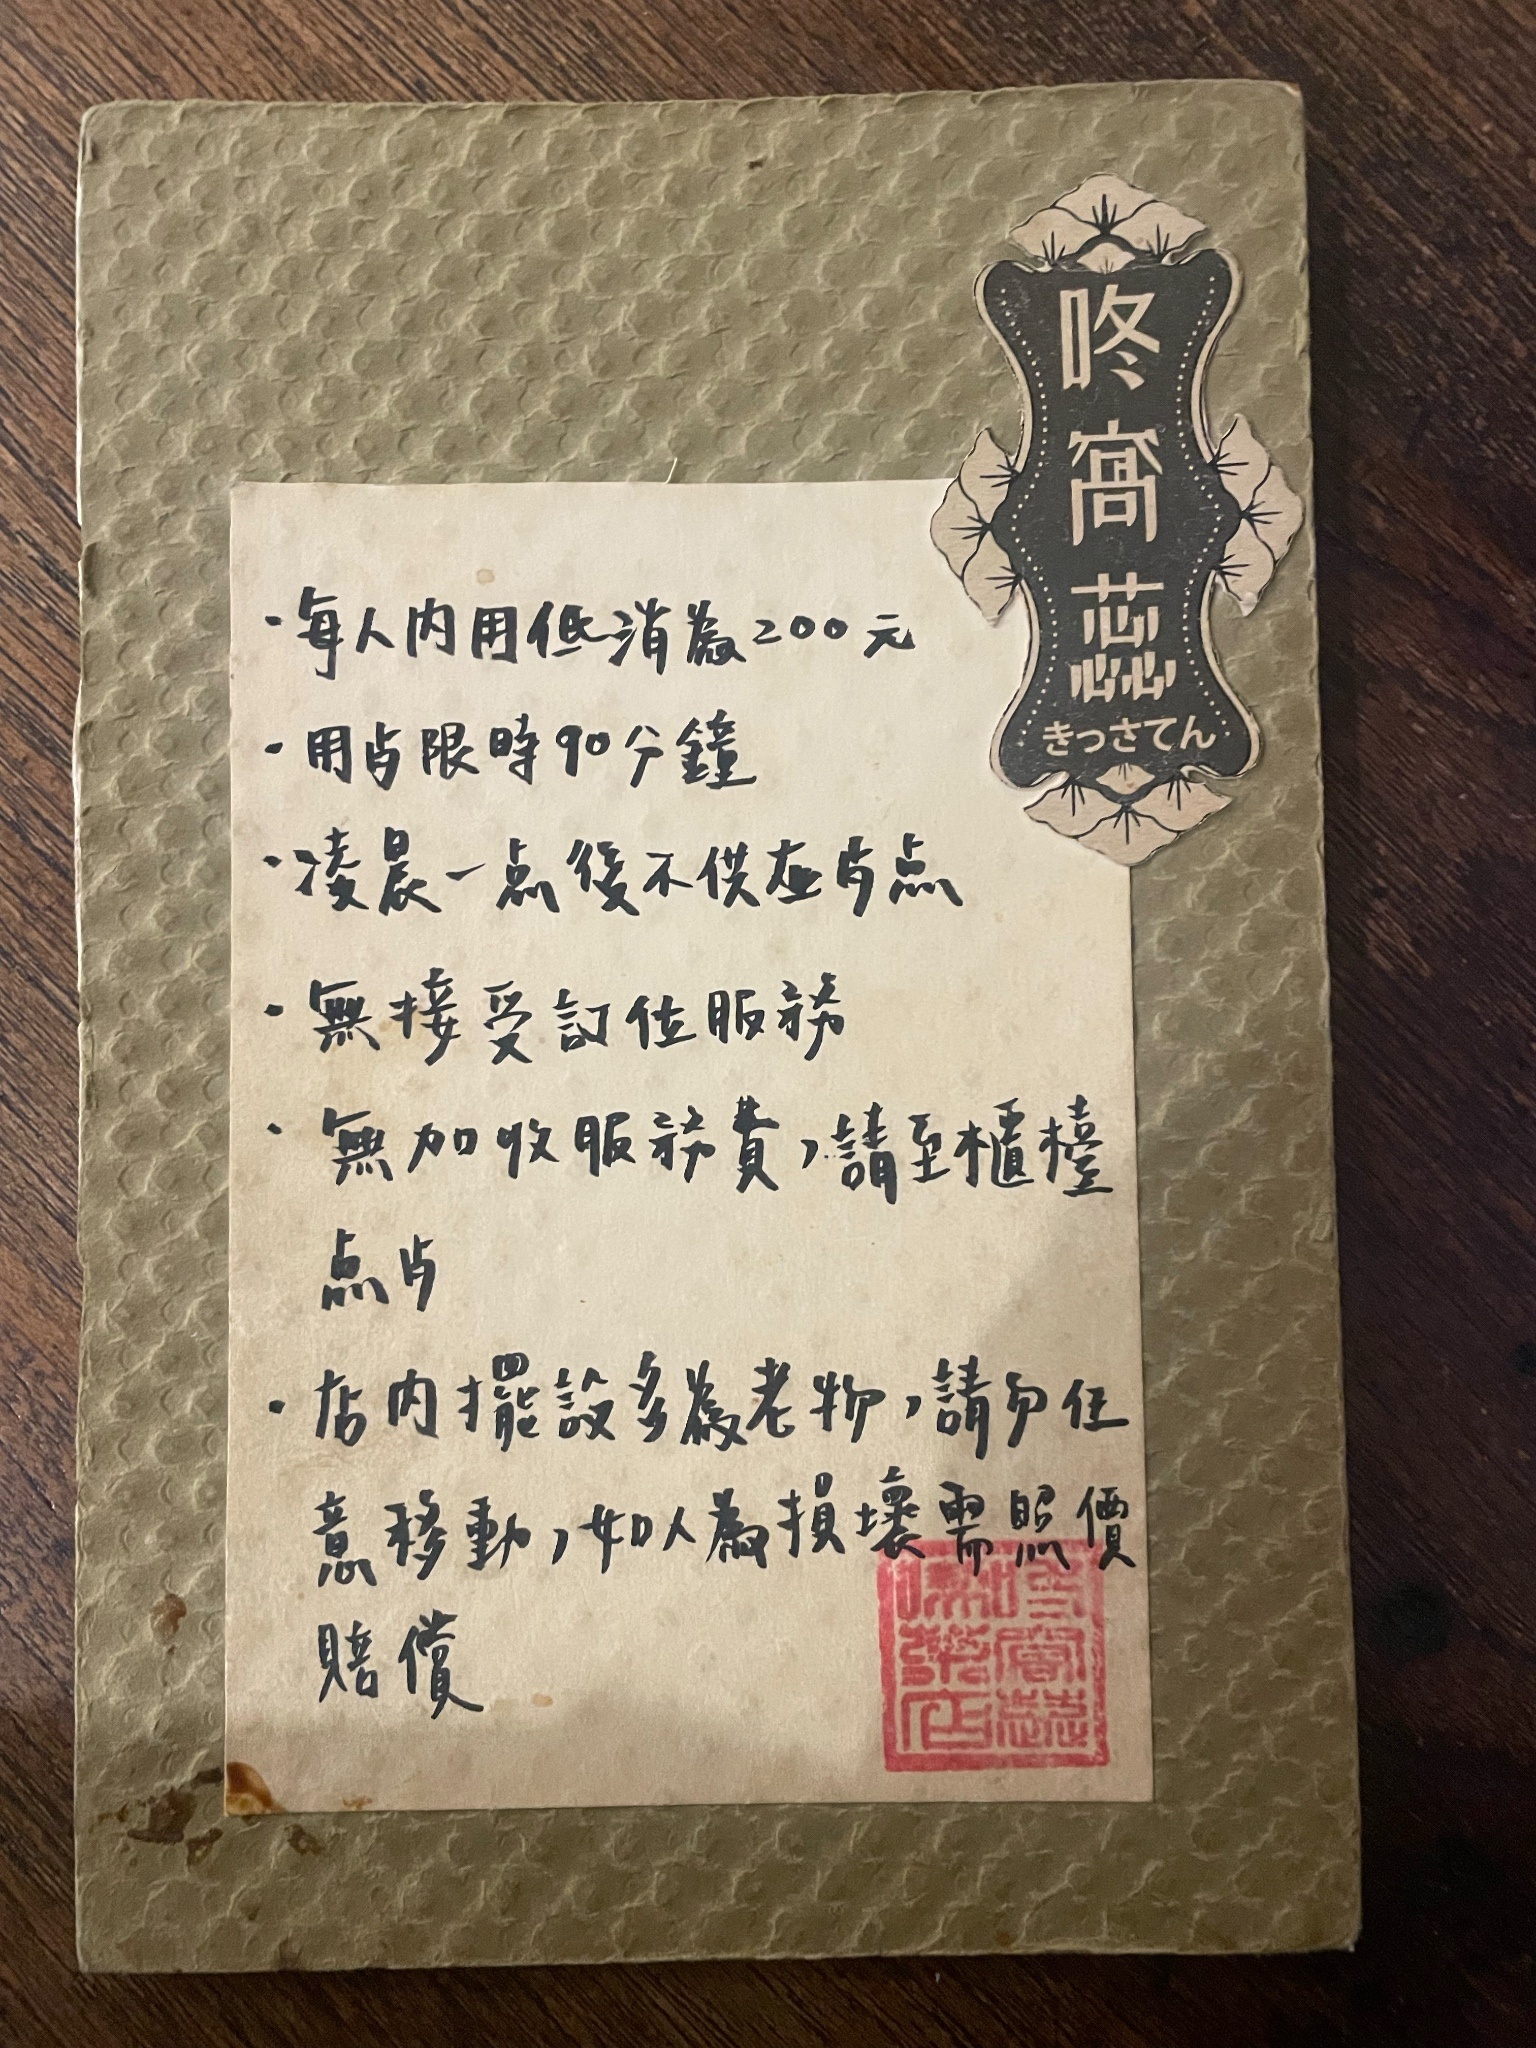 咚窩蕊
きっさてん
·每人內用低消為200元
·用占限時90分鐘
·凌晨一点後不供应占点
·無接受訂位服務
·無加收服務費,請至櫃檯
点占
·店內擺設多為老物,請勿任
意移動,如人為損壞需照價
賠償
咚窩蕊
喫茶店